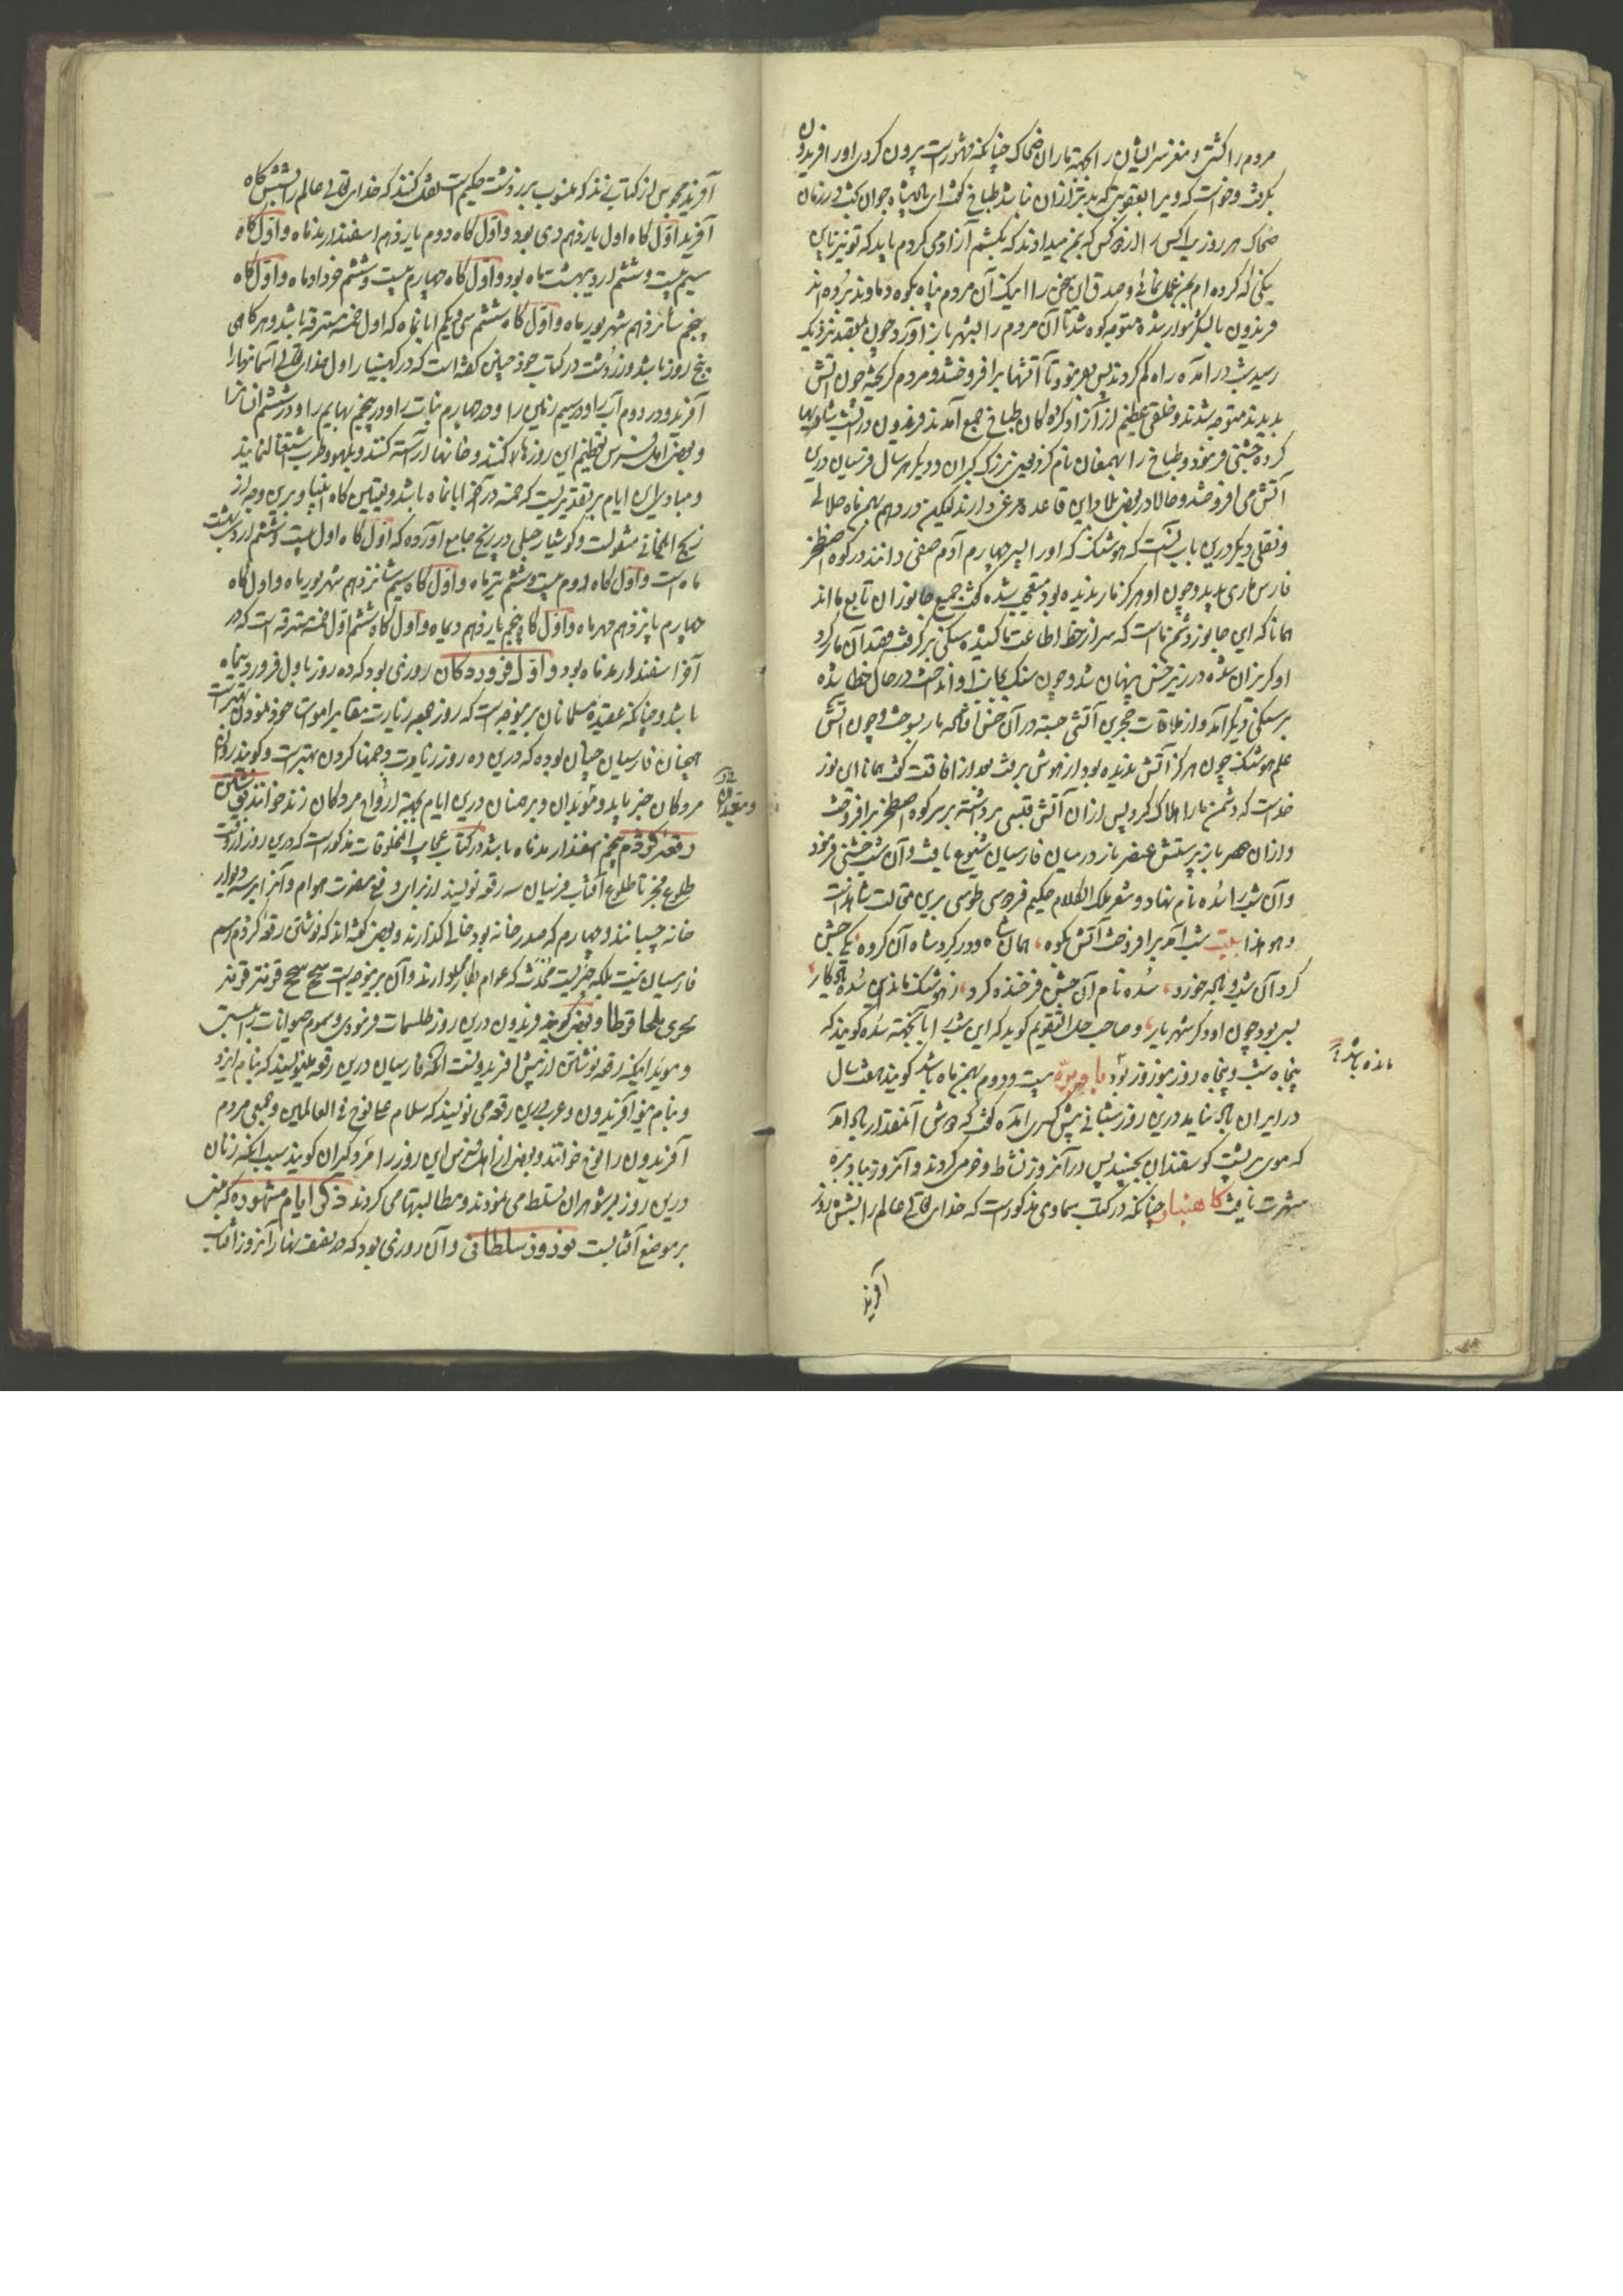 مردم را کشتی و مغز سر ایشان را بجهة ماران ضحاک چنانکه مشهورست بیرون کردی اورا فریدون
بگرفت و خواست که ویرا بعقوبتی که بدتر ازان نباشد طباخ گفت ای پادشاه جوان بخت در زمان
ضحاک هر روز یکی را از دو کس که بمن میدادند که بکشم آزاد می کردم باید که تو نیز با من
نیکی کنی که کرده ام بمن عمل نمائی و صدق این سخن را اینک آن مردم پناه بکوه دماوند برده اند
فریدون با لشکر سوار شده متوجه کوه شد تا آن مردم را بشهر باز آورد و چون بمقصد نزدیک
رسید شب در آمد و راه گم کردند پس بفرمود تا آتشها برافروختند و مردم گریخته چون آتش
بدیدند متوجه شدند و خلقی عظیم از آزاد کرده گان طباخ جمع آمدند فریدون در آن شب شادیها
کرده جشنی فرمود و طباخ را بهمغان نام کرد یعنی بزرگ گبران و دیگر هر سال فرسیان درین
آتش می افروختند و حالا در بعضی بلاد این قاعده مرعی دارند لیکن در دهم بهمن ماه جلالی
و نقلی دیگر درین باب آنست که هوشنگ که اورا پسر چهارم آدم صفی دانند در کوه اصطخر
فارس ماری بدید و چون او هرگز مار ندیده بود متعجب شده گفت جمیع جانوران تابع ما اند
همانا که این جانور دشمن ماست که سر از خط اطاعت ما کشیده سنگی برگرفت و قصد آن مار کرد
او گریزان شده در زیر خس پنهان شد و چون سنگ بجانب او انداخت در حال خطا شده
بر سنگی دیگر آمد و از ملاقات حجرین آتشی جسته در آن خس افتاد مار بسوخت و چون آتش
علم هوشنگ چون هرگز آتش ندیده بود از هوش برفت بعد از افاقت گفت همانا این نور
خداست که دشمن ما را هلاک کرد پس ازان آتش قبسی برداشته بر سر کوه اصطخر برافروخت
و ازان عصر باز پرستش عنصر نار در میان فارسیان شیوع یافت و آن شب جشنی فرمود
و آن شب را سده نام نهاد و شعر ملک الکلام حکیم فردوسی طوسی برین مقالت شاهدست
و هو هذا بیت شب آمد برافروخت آتش بکوه ، همان شاه و در گرد شاه آن گروه ، یکی جشن
کرد آن شب و باده خورد ، سده نام آن جشن فرخنده کرد ، ز هوشنگ ماند این سده یادگار ،
بسی بود چون او دگر شهریار ، و صاحب حل التقویم گوید که این شب را بآنجهته سده گویند که
پنجاه شب و پنجاه روز بنوروز بود باد بره بیست و دوم بهمن ماه باشد گویند هفت سال
مانده باشد
در ایران باد نیامد درین روز شبانی پیش کسری آمد و گفت که دوش آنمقدار باد آمد
که موی بر پشت گوسفندان بجنبید پس در آنروز نشاط و خرمی کردند و آنروز بباد بره
شهرت یافت کاهنبار چنانکه در کتب سماوی مذکورست که خدای تعالی عالم را بشش روز
آفرید
آفرید مجوس از کتاب زند که منسوب بزردشت حکیم است نقل کنند که خدای تعالی عالم را بشش گاه
آفرید اوّل گاه اول یازدهم دی بود و اوّل گاه دوم یازدهم اسفندارمذماه و اوّل گاه
سیم بیست و ششم اردیبهشت ماه بود و اوّل گاه چهارم بیست و ششم خردادماه و اوّل گاه
پنجم شانزدهم شهریورماه و اوّل گاه ششم سی و یکم ابانماه که اول خمسه مسترقه باشد و هر گاهی
پنج روز باشد و زردشت در کتاب خود چنین گفته است که در گهنبار اول خدای تعالی آسمانها را
آفرید و در دوم آب را و در سیم زمین را و در چهارم نبات را و در پنجم بهایم را و در ششم انسان را
و بعضی اهل فرس تعظیم این روزها کنند و خانها آراسته کنند و بلهو و طرب اشتغال نمایند
و مبادی این ایام بر تقدیریست که خمسه در آخر ابانماه باشد و تعیین گاه انبار برین وجه از
زیج ایلخانی منقولست و کوشیار جیلی در زیج جامع آورده که اوّل گاه اول بیست و ششم اردیبهشت
ماه است و اوّل گاه دوم بیست و ششم تیرماه و اوّل گاه سیم شانزدهم شهریورماه و اول گاه
چهارم پانزدهم مهرماه و اوّل گاه پنجم یازدهم دیماه و اوّل گاه ششم اوّل خمسه مسترقه است که در
آخر اسفندارمذماه بود و اوّل فروردگان روزی بود که ده روز باول فروردینماه
باشد و چنانکه عقیدۀ مسلمانان برینوجه است که روز جمعه زیارت مقابر اموات خود نمودن بهترست
همچنان فارسیان چنان بوده که درین ده روز زیارت دخمها کردن بهترست و گویند ارواح
مردگان خبر یابد و موبدان و هیربدان درین ایام بجهة ارواح مردگان زند خوانند نوشتن
رقعۀ کژدم پنجم اسفندارمذماه باشد در کتاب عجایب المخلوقات مذکورست که درین روز از وقت
طلوع فجر تا طلوع آفتاب فرسیان سه رقعه نویسند از برای دفع مضرت هوام و آنرا بر سه دیوار
خانه چسبانند و چهارم که صدر خانه بود خالی گذارند و بعضی گفته اند که نوشتن رقعه کژدم رسم
فارسیان نیست بلکه چیزیست محدث که عوام بکار میدارند و آن برینوجه است سحح سحح قرنتر قرنتر
بحری ملحا قرطا و بعضی گویند فریدون درین روز طلسمات فرمود
و موید اینکه رقعه نوشتن از پیش افریدونست آنکه فارسیان درین رقعه مینویسند که بنام ایزد
و بنام نیو آفریدون و عرب درین رقعه می نویسند که سلام علی نوح فی العالمین و بعضی مردم
آفریدون را نوح خوانند و بعضی از اهل فرس این روز را مردگیران گویند سبب آنکه زنان
درین روز بر شوهران تسلط می نمودند و مطالبتها می کردند ذکر ایام مشهوده که مبنی
بر موضع آفتابست نوروز سلطانی و آن روزی بود که در نصف نهار آنروز آفتاب